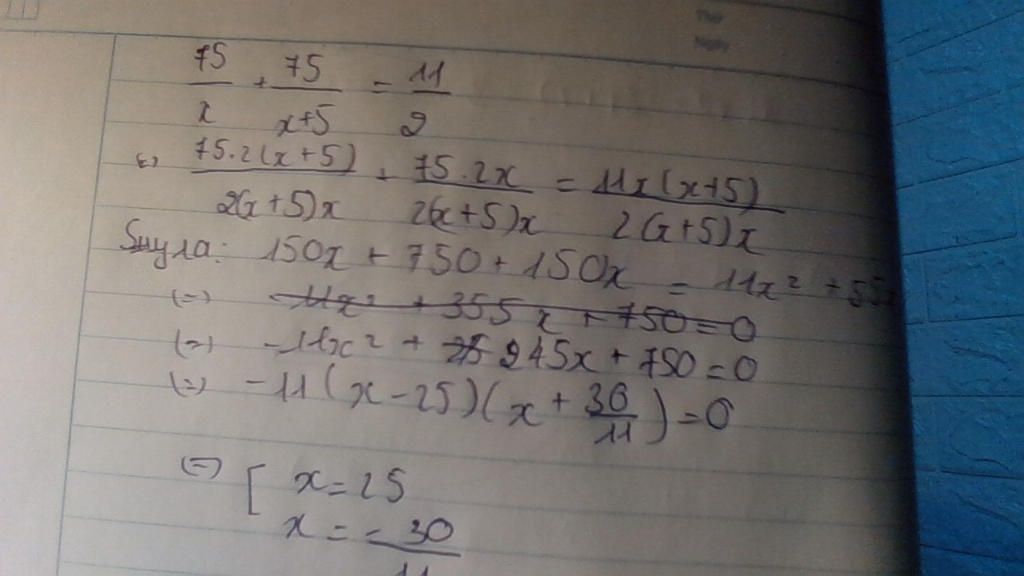 Thứ
Ngày
75/x + 75/x+5 = 11/2
(=) 75.2(x+5)/2(x+5)x + 75.2x/2(x+5)x = 11x(x+5)/2(x+5)x
Suy ra: 150x + 750 + 150x = 11x² + 55x
(=) -11x² + 355x + 750 = 0
(=) -11x² + 245x + 750 = 0
(=) -11(x-25)(x + 30/11) = 0
(=) [ x = 25
x = -30/11